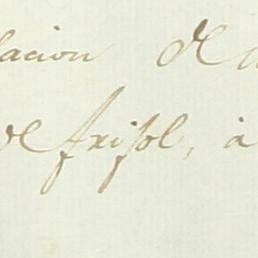 lacion de
de frisol, à